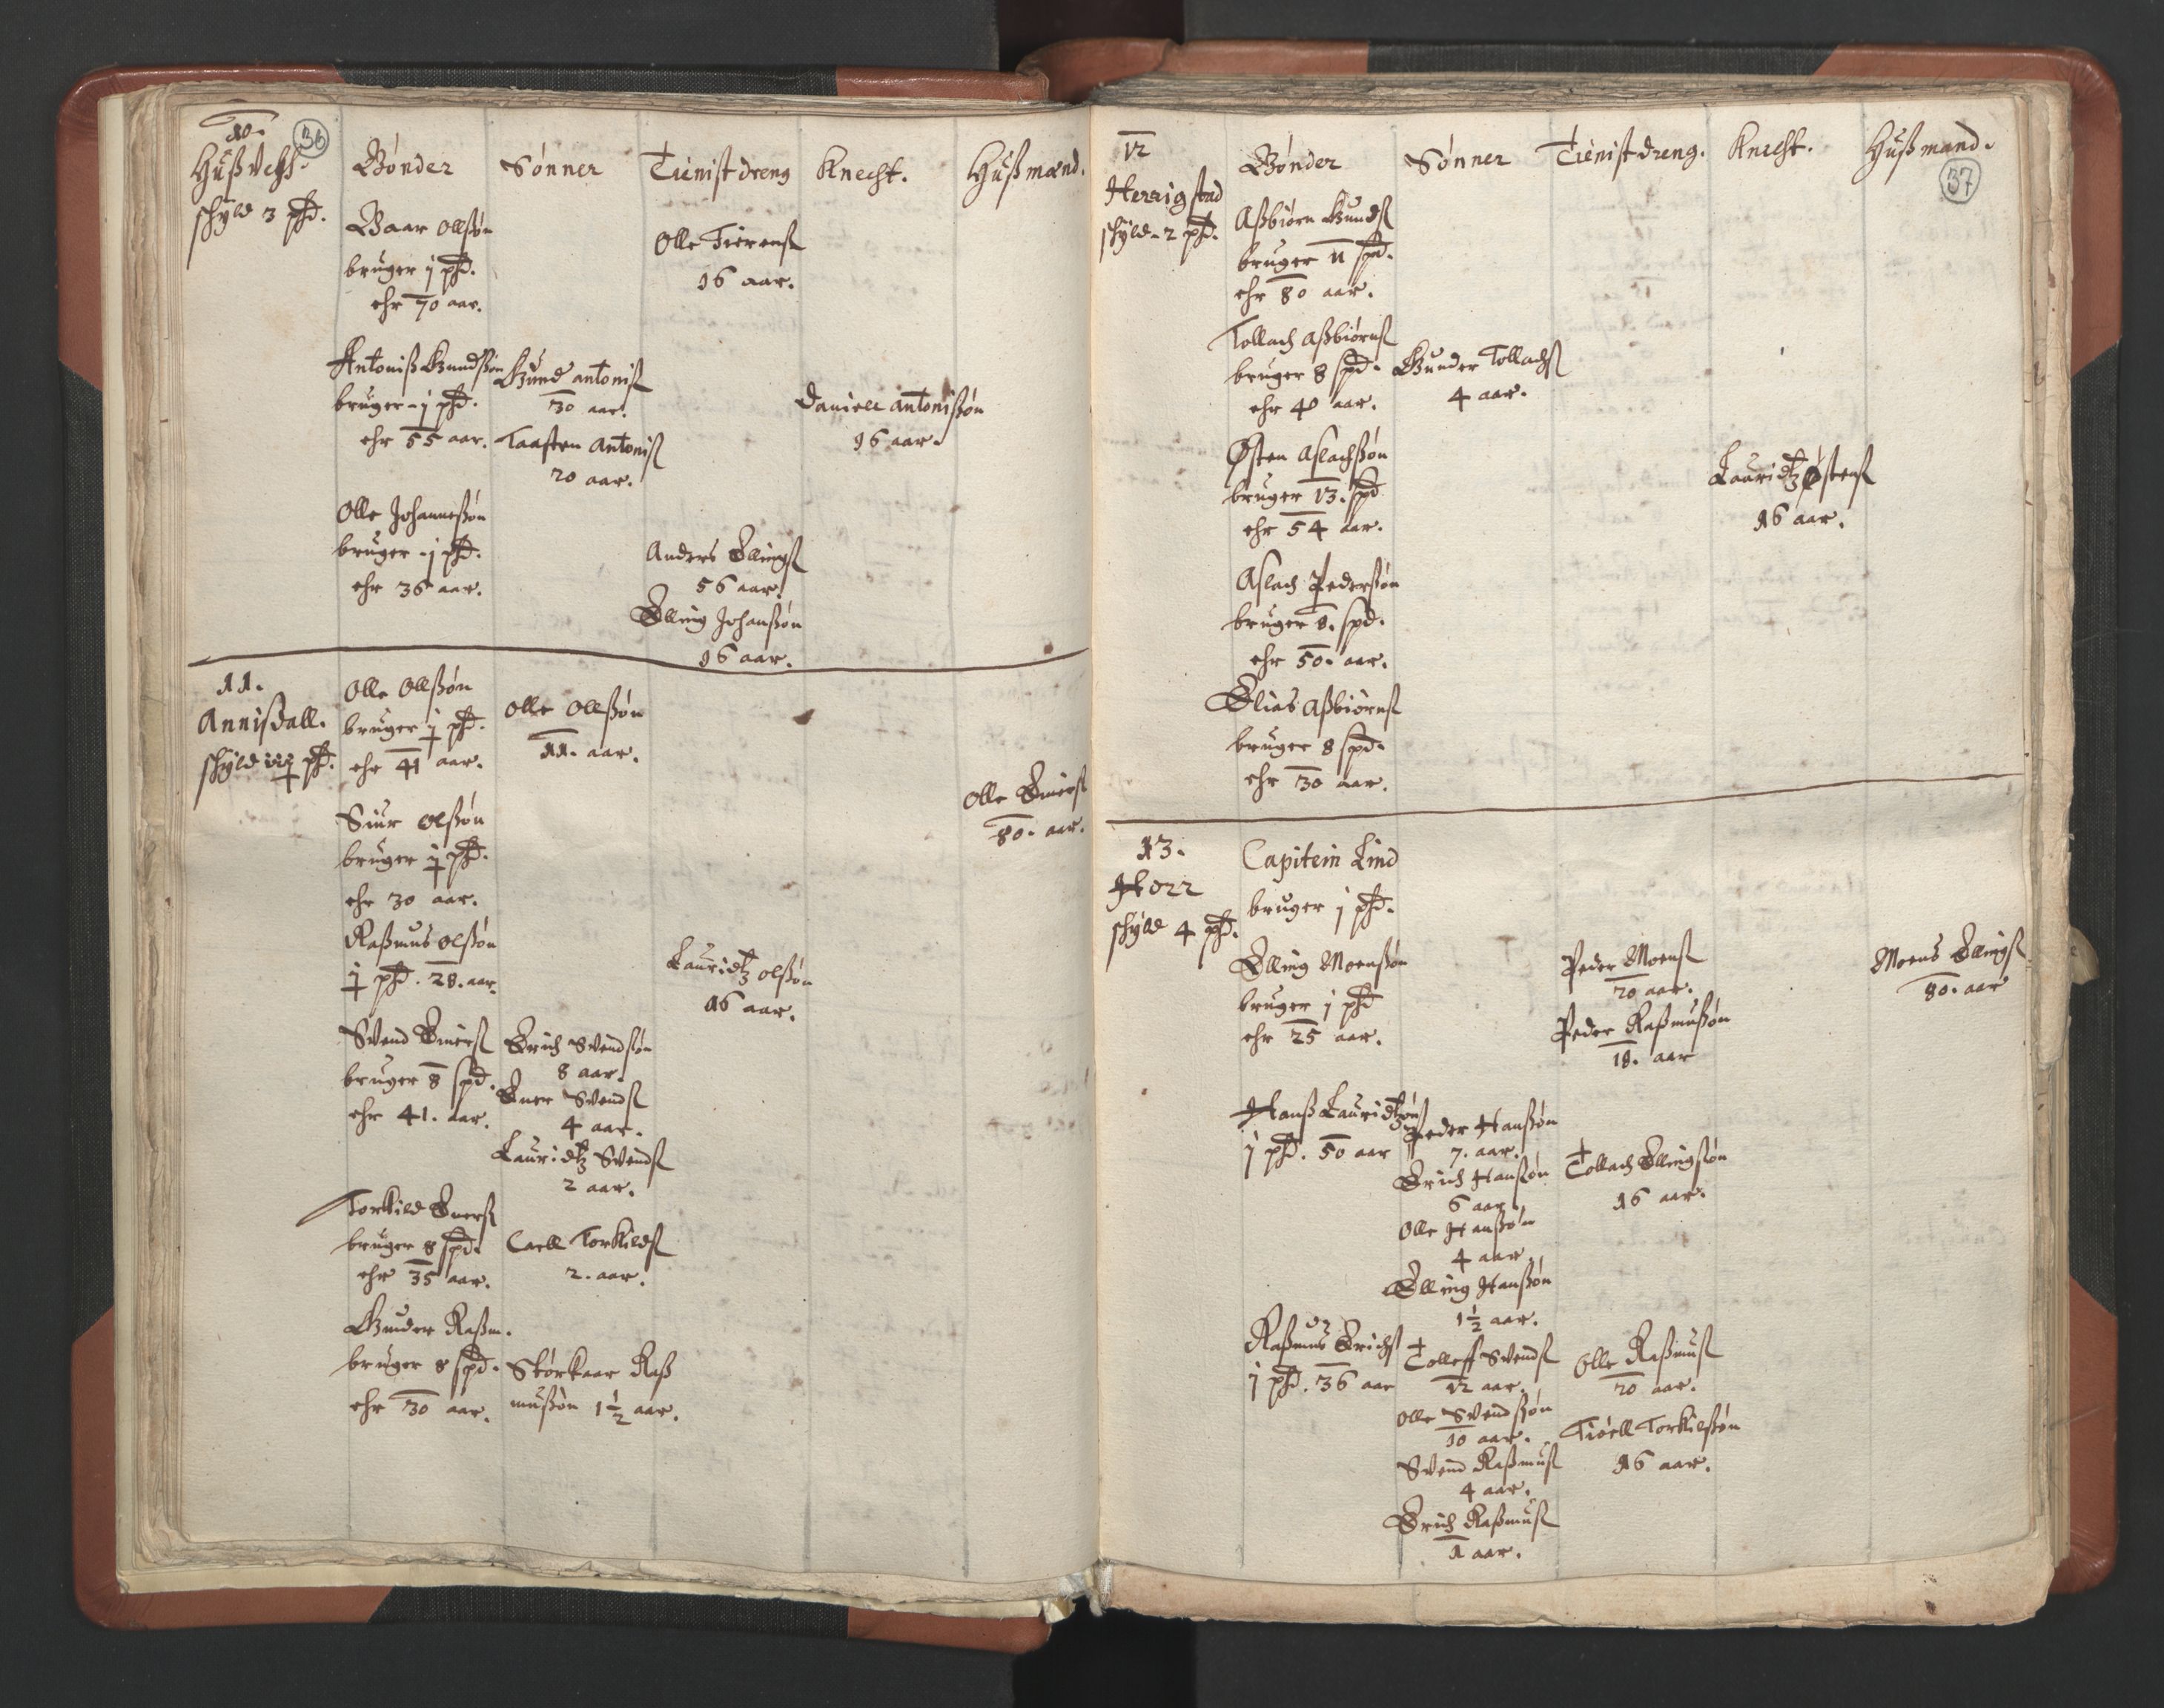 10.
36
Hußvehs.
schyld 3 pħd.
Bønder
Sønner
Tienist dreng
Knecht.
Hußmænd.
Baar Ollsøn
bruger j pħd.
ehr 70 aar.
Olle Tierens
16 aar.
Antoniß Gundßøn
bruger - j pħd.
ehr 55 aar.
Gund antonis
30 aar.
Taasten Antonis
20 aar.
Daniell antonißøn
16 aar.
Olle Johanneßøn
bruger - j pħd.
ehr 36 aar.
Anders Ellings
56 aar.
Elling Johanßøn
16 aar.
11.
Annisdall.
schyld pħd.
Olle Ollßøn
bruger j pħd.
ehr 41 aar.
Olle Ollßøn
11. aar.
Siur Olßøn
bruger j pħd.
ehr 30 aar.
Olle Einers
80. aar.
Raßmus Olßøn
j pħd. 28. aar.
Lauridtz Olßøn
16 aar.
Svend Einers
bruger 8 spd.
ehr 41. aar.
Erich Svendsøn
8 aar.
Ener Svends
4 aar.
Lauridtz Svends
2 aar.
Torkild Eners
bruger 8 spd.
ehr 35 aar.
Caell Torkilds
2. aar.
Gunder Raßm.
bruger 8 spd.
ehr 30 aar.
Størkaar Raß
mußøn 1½ aar.
12
Herrigstad
schyld - 2 pħd.
Bønder
Sønner
Tienist dreng.
Knecht.
Hußmand.
37
Aßbiørn Gunds
bruger 11 spd.
ehr 80 aar.
Tollach Aßbiørns
bruger 8 spd.
ehr 40 aar.
Gunder Tollachs
4 aar.
Østen Aslachßøn
bruger 13. spd
ehr 54 aar.
Lauridtz Østens
16 aar.
Aslach Pederßøn
bruger 8. spd.
ehr 50. aar.
Elias Aßbiørns
bruger 8 spd.
ehr 30 aar.
13.
Horr
schyld 4 pħd.
Capitein Lind
bruger j pħd.
Elling Moensøn
bruger j pħd
ehr 25 aar.
Peder Moens
20 aar.
Peder Raßmußøn
18. aar
Moens Ellings
80. aar
Hanß Lauridtzøn
j pħd. 50 aar
Peder Hanßøn
7. aar.
Erich Hanßøn
6 aar
Olle Hanßøn
4 aar
Elling Hanßøn
1½ aar.
Tollach Ellingsøn
16 aar.
Raßmus Erichs
j pħd. 36 aar
Tolleff Svends
12 aar.
Olle Svendßøn
10 aar.
Svend Raßmus
4 aar.
Erich Raßmus
1 aar.
Olle Raßmus
20 aar.
Tiøell Torkilßøn
16 aar.